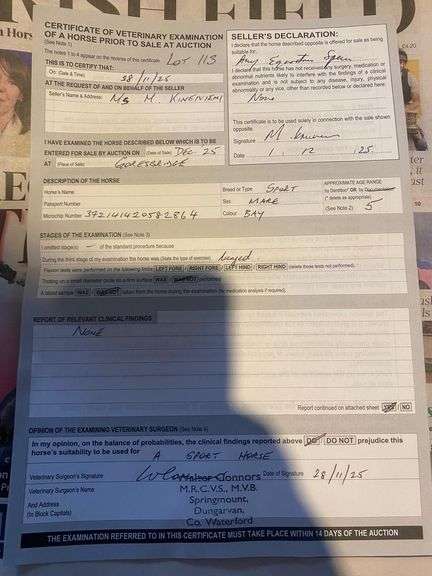 CERTIFICATE OF VETERINARY EXAMINATION
OF A HORSE PRIOR TO SALE AT AUCTION
(See Note 1)
The notes 1 to 4 appear on the reverse of this certificate. LOT 113
THIS IS TO CERTIFY THAT:
On: (Date & Time) 28/11/25
AT THE REQUEST OF AND ON BEHALF OF THE SELLER
Seller's Name & Address: MS M.
I HAVE EXAMINED THE HORSE DESCRIBED BELOW WHICH IS TO BE
ENTERED FOR SALE BY AUCTION ON (Date of Sale) DEC 25
AT (Place of Sale) GORESBRIDGE
SELLER'S DECLARATION:
I declare that the horse described opposite is offered for sale as being
suitable for:
Any Equestrian Sport
I declare that this horse has not received any surgery, medication or
abnormal nutrients likely to interfere with the findings of a clinical
examination and is not subject to any disease, injury, physical
abnormality or any vice, other than recorded below or declared here:
None
This certificate is to be used solely in connection with the sale shown
opposite.
Signature M.
Date 1. 12 .25
DESCRIPTION OF THE HORSE
Horse's Name
Breed or Type SPORT
APPROXIMATE AGE RANGE
by Dentition* OR by Documentation*
(* delete as appropriate)
(See Note 2) 5
Passport Number
Sex MARE
Microchip Number 372141420582864
Colour BAY
STAGES OF THE EXAMINATION (See Note 3)
I omitted stage(s) – of the standard procedure because
During the third stage of my examination the horse was (State the type of exercise) lunged
Flexion tests were performed on the following limbs LEFT FORE / RIGHT FORE / LEFT HIND / RIGHT HIND (delete those tests not performed).
Trotting on a small diameter circle on a firm surface WAS / WAS NOT performed
A blood sample WAS / WAS NOT taken from the horse during the examination (for medication analysis if required).
REPORT OF RELEVANT CLINICAL FINDINGS
NONE
Report continued on attached sheet YES / NO
OPINION OF THE EXAMINING VETERINARY SURGEON (See Note 4)
In my opinion, on the balance of probabilities, the clinical findings reported above DO / DO NOT prejudice this
horse's suitability to be used for A SPORT HORSE
Veterinary Surgeon's Signature
Date of Signature 28/11/25
Veterinary Surgeon's Name
Walter Connors
M.R.C.V.S., M.V.B.
And Address
(In Block Capitals)
Springmount,
Dungarvan,
Co. Waterford
THE EXAMINATION REFERRED TO IN THIS CERTIFICATE MUST TAKE PLACE WITHIN 14 DAYS OF THE AUCTION